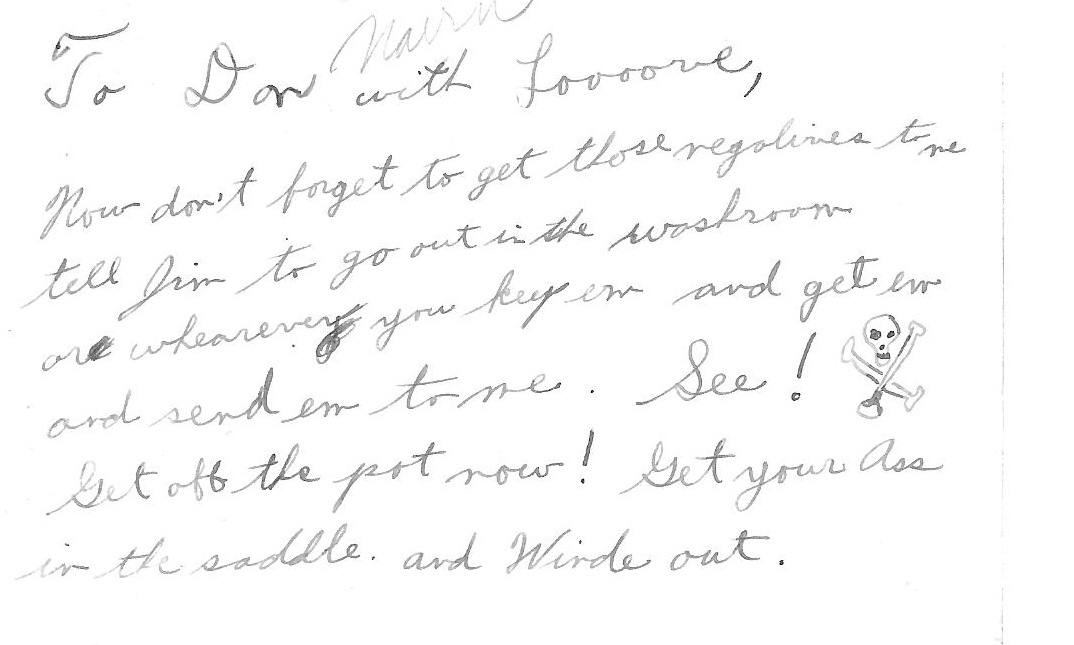 To Don with Loooove,
Now don't forget to get those negatives to me
tell Jim to go out in the washroom
or whearever you keep em and get em
and send em to me. See!
Get off the pot now! Get your Ass
in the saddle. and Winde out.